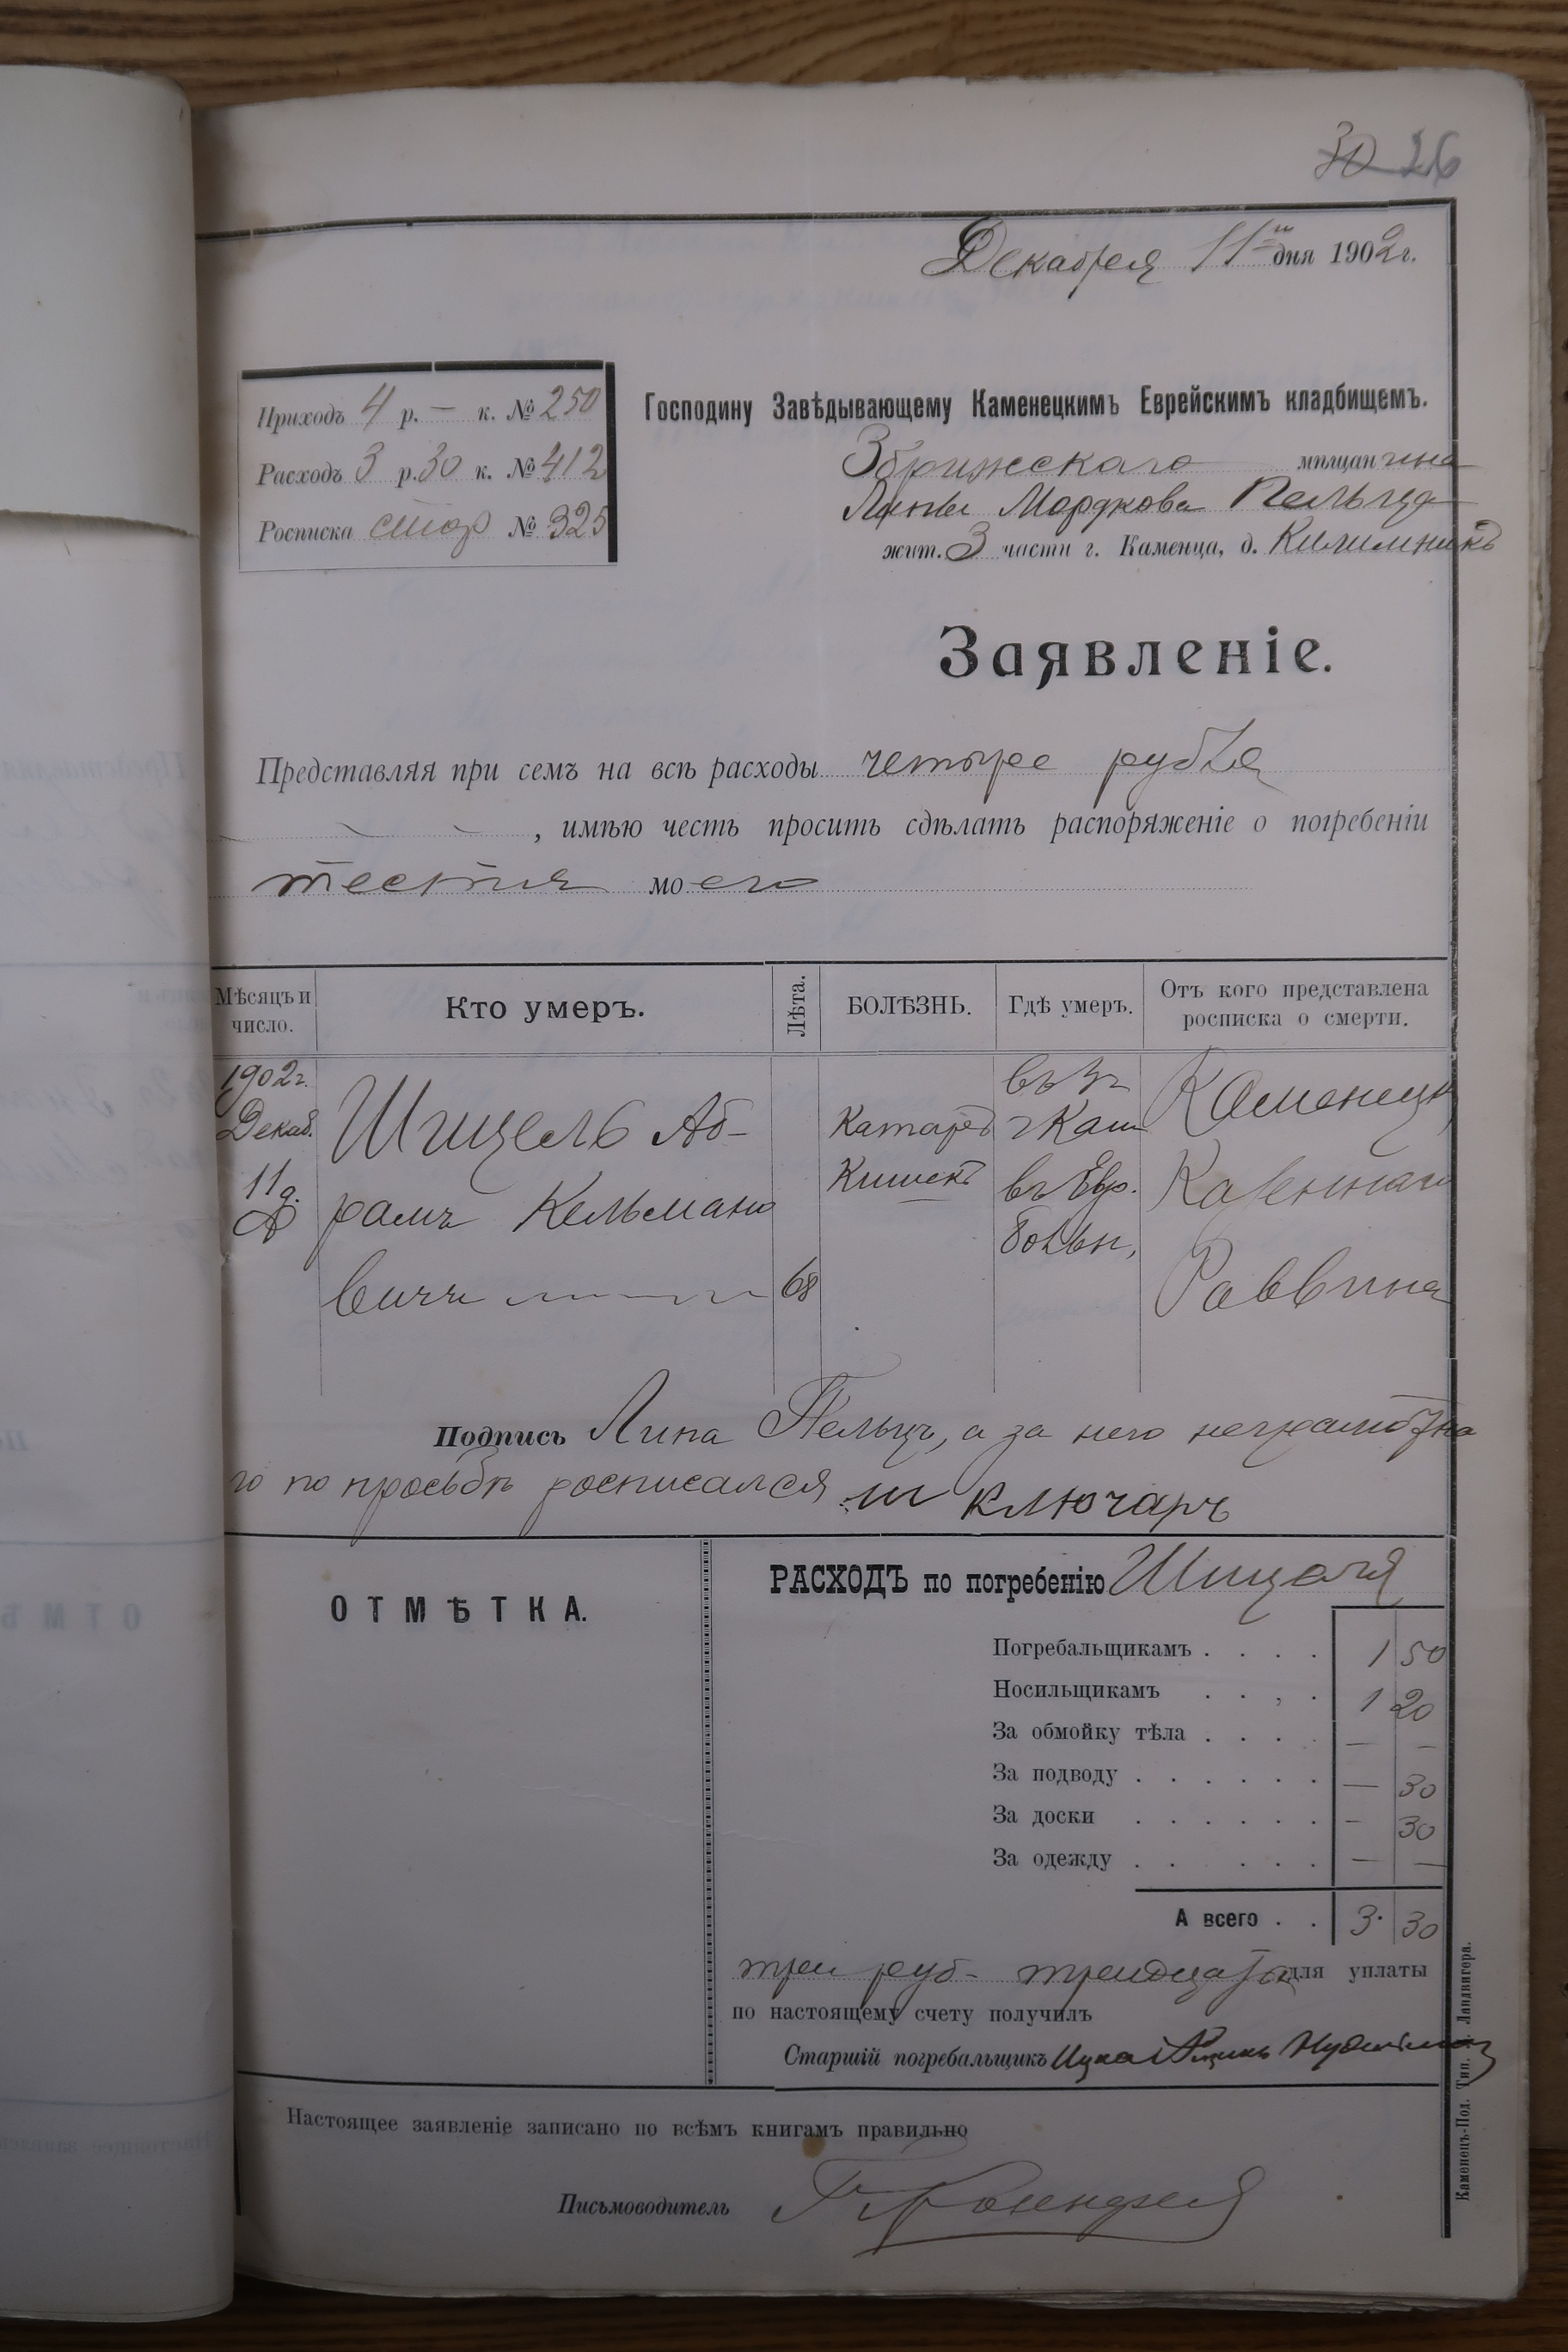 30 26
Декабря 11го дня 1902 г.
Приходъ 4 р. — к. № 250
Расходъ 3 р. 30 к. № 412
Росписка стор № 325
Господину Завѣдывающему Каменецкимъ Еврейскимъ кладбищемъ.
Збрижскаго мѣщанина
Липы Мордкова Пельца
жит. 3 части г. Каменца, д. Килимникъ
Заявленіе.
Представляя при семъ на всѣ расходы четыре рубля
, имѣю честь просить сдѣлать распоряженіе о погребеніи
тестя моего
Мѣсяцъ и число.
Кто умеръ.
Лѣта.
БОЛѢЗНЬ.
Гдѣ умеръ.
Отъ кого представлена росписка о смерти.
1902 г.
Декаб.
11 д.
Шицель Аб-
рамъ Кельмано
вичъ
68
Катаръ
Кишекъ
г Кам
въ Евр.
больн,
Каменецк
Казеннаго
Раввина
Подпись Липа Пельцъ, а за него неграмотна
го по просьбѣ росписался Ш Ключаръ
ОТМѢТКА.
РАСХОДЪ по погребенію Шицеля
Погребальщикамъ . . . . 1 50
Носильщикамъ . . , . 1 20
За обмойку тѣла . . . . — —
За подводу . . . . . . — 30
За доски . . . . . . - 30
За одежду . . . . . . — —
А всего . . 3. 30
три руб- тридцать для уплаты
по настоящему счету получилъ
Старшій погребальщикъ
Настоящее заявленіе записано по всѣмъ книгамъ правильно
Письмоводитель
Каменецъ-Под. Тип. Ландвигера.